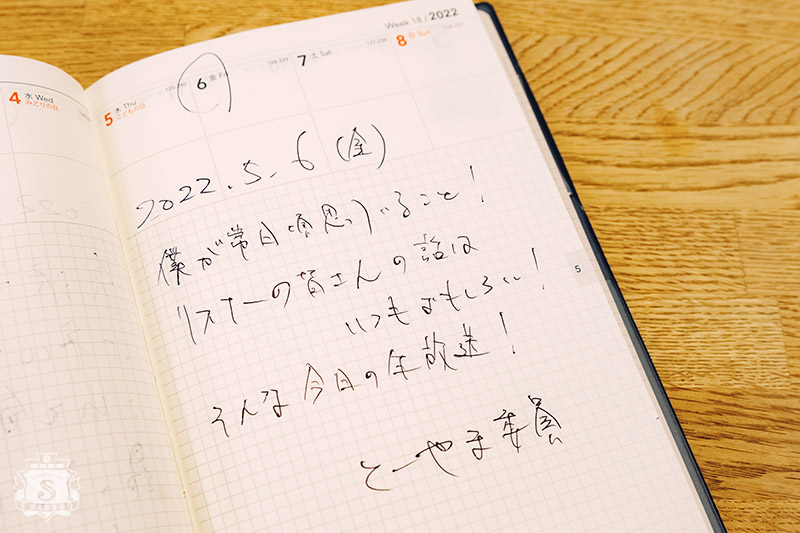 Week 18 / 2022
4 水 Wed
みどりの日
5 木 Thu
こどもの日
6 金 Fri
7 土 Sat
8 日 Sun
2022.5.6(金)
僕が常日頃思っていること!
リスナーの皆さんの話は
いつもおもしろい!
そんな今日の生放送!
とーやま委員
5
S